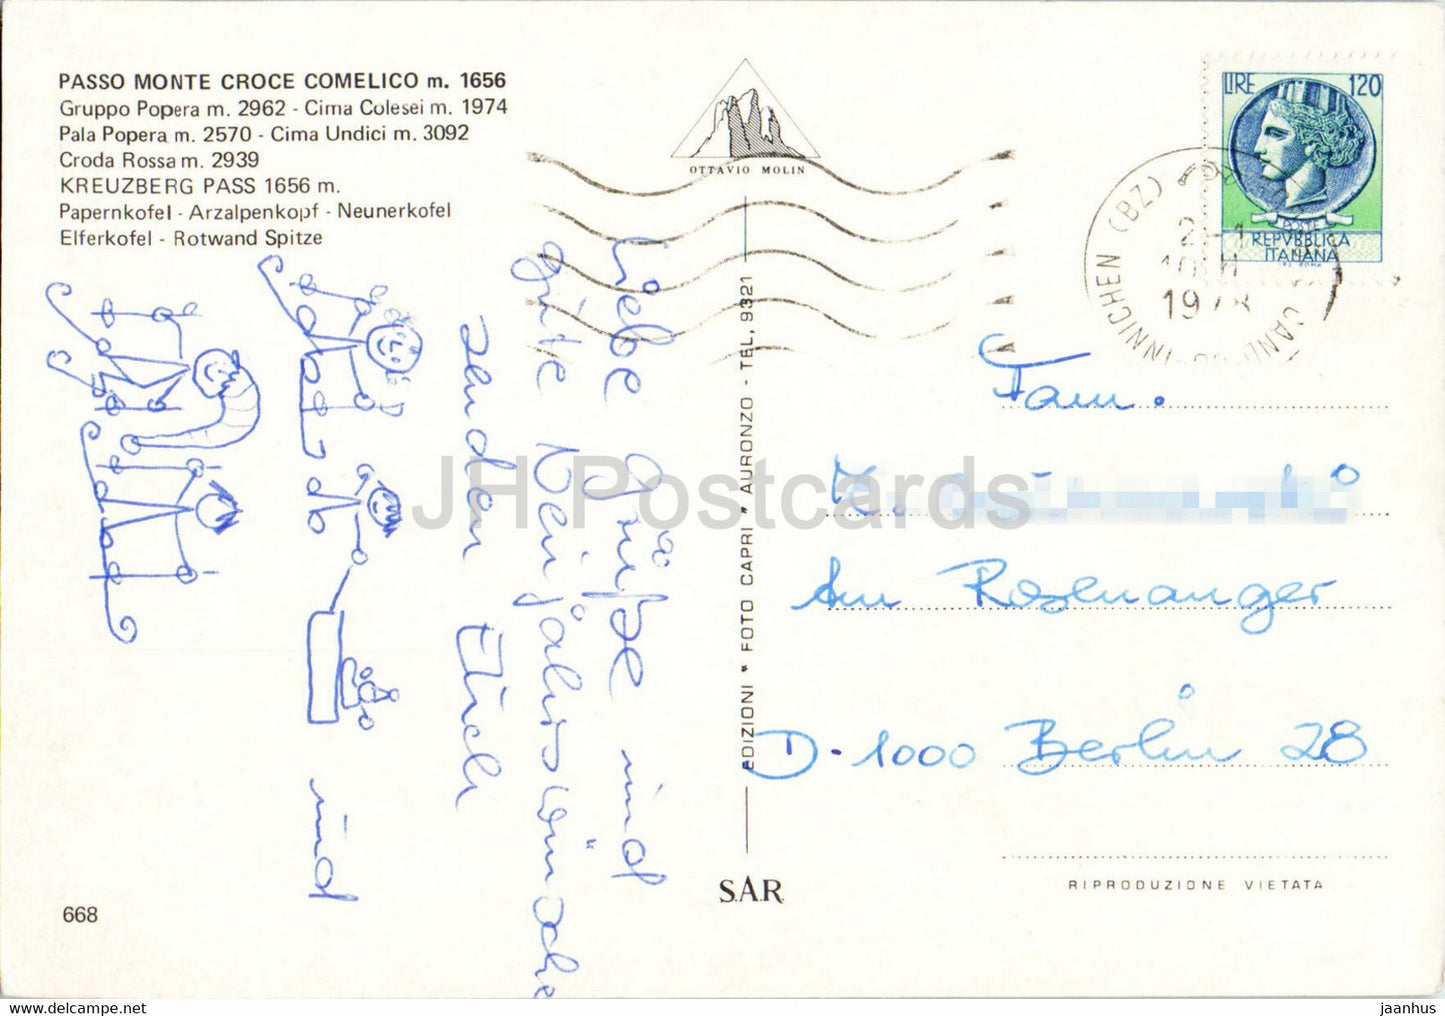 PASSO MONTE CROCE COMELICO m. 1656
Gruppo Popera m. 2962 - Cima Colesei m. 1974
Pala Popera m. 2570 - Cima Undici m. 3092
Croda Rossa m. 2939
KREUZBERG PASS 1656 m.
Papernkofel - Arzalpenkopf - Neunerkofel
Elferkofel - Rotwand Spitze
OTTAVIO MOLIN
LIRE 120
POSTE
REPVBBLICA
ITALIANA
INNICHEN (BZ)
Liebe Grüße und
gute Neujahrswünsche
senden Euch
und
EDIZIONI * FOTO CAPRI * AURONZO - TEL. 9321
Fam.
Am Rosenanger
D-1000 Berlin 28
S.A.R.
RIPRODUZIONE VIETATA
668
JH Postcards
https://www.delcampe.net
jaanhus